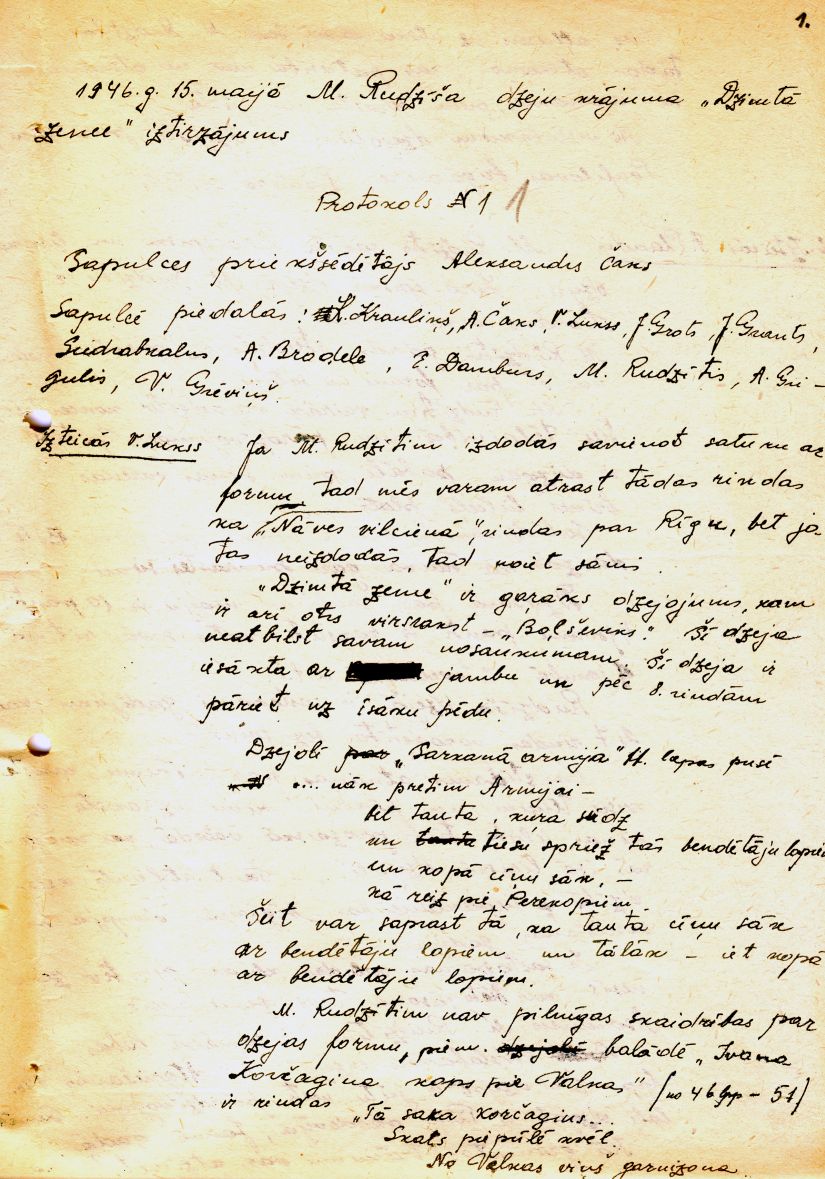 1.
1946.g. 15. maijā M. Rudzīša dzeju krājuma „Dzimtā
zeme" iztirzājums
Protokols № 1 1
Sapulces priekšsēdētājs Aleksandrs Čaks
Sapulcē piedalās: K. Krauliņš, A. Čaks, V. Lukss, J. Grots, J. Grants,
Sudrabkalns, A. Brodele, E. Damburs, M. Rudzītis, A. Gri-
gulis, V. Grēviņš.
Izteicās V. Lukss Ja M. Rudzītim izdodās savienot saturu ar
formu, tad mēs varam atrast tādas rindas
ka „Nāves vilcienā", rindas par Rīgu, bet ja
tas neizdodās, tad noiet sāmis.
„Dzimtā zeme" ir garāks dzejojums, kam
ir arī otrs virsrakst – „Boļševiks." Šī dzeja
neatbilst savam nosaukumam. Šī dzeja ir
iesākta ar jambu un pēc 8. rindām
pāriet uz īsāku pēdu.
Dzejolī par „Sarkanā armija" 11. lapas pusē
.... nāk pretim Armijai –
bet tauta, kura sūdz
un tauta tiesu spriež tās bendētāju lopiem
un kopā cīņu sāk, –
kā reiz pie Perekopiem
Šeit var saprast tā, ka tauta cīņu sāk
ar bendētāju lopiem un tālāk – iet kopā
ar bendētāju lopiem.
M. Rudzītim nav pilnīgas skaidrības par
dzejas formu, piem. dzejolī balādē „Ivana
Korčagina kaps pie Valkas" (no 46 lpp – 51)
ir rindas „Tā saka korčagins...
Skats piepūlē kvēl.
No Valkas viņš garnizona